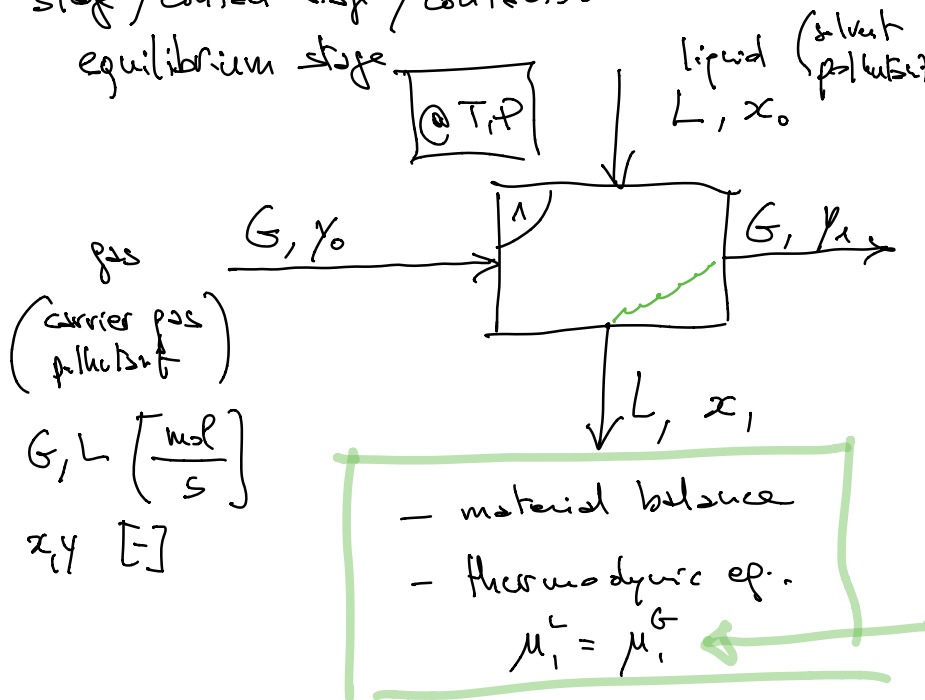 equilibrium stage
@ T, P
liquid (solvent
L, x₀
1
G, y₀
G, y₁
gas
(carrier gas
pollutant)
L, x₁
G, L [mol/s]
x, y [-]
- material balance
- thermodynic eq..
μ₁ᴸ = μ₁ᴳ